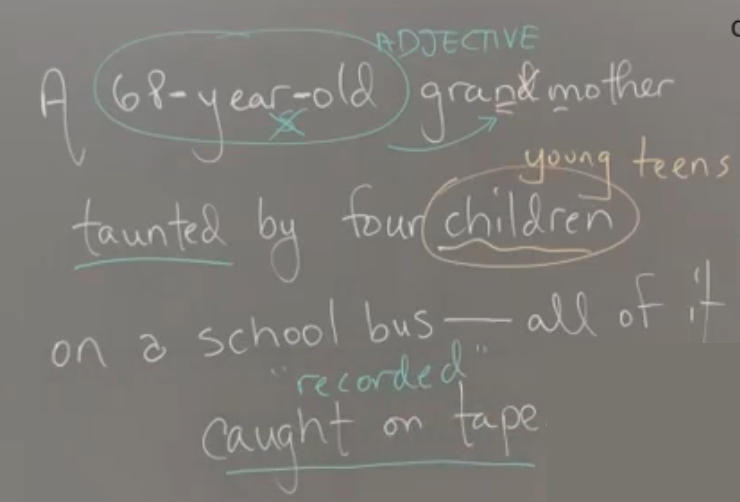 ADJECTIVE
A 68-year-old grandmother
young teens
taunted by four children
on a school bus — all of it
"recorded"
caught on tape.